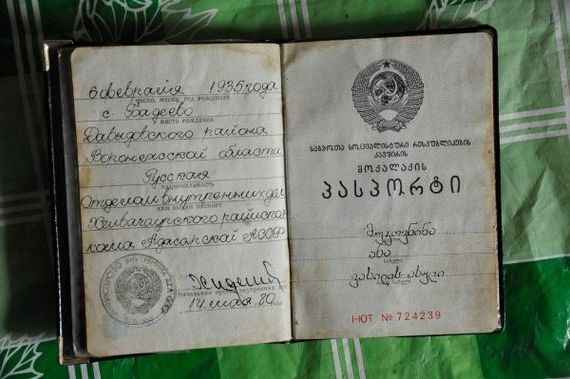 6 февраля 1935 года
ЧИСЛО, МЕСЯЦ, ГОД РОЖДЕНИЯ
с. Бадеево
МЕСТО РОЖДЕНИЯ
Давыдовского района
Воронежской области
Русская
НАЦИОНАЛЬНОСТЬ
Отделом внутренних дел
КЕМ ВЫДАН ПАСПОРТ
Хелвачаурского райиспол-
кома Аджарской АССР
14 мая 80 года
საბჭოთა სოციალისტური რესპუბლიკების
კავშირის
მოქალაქის
პასპორტი
ანა
სახელი
ვასილის ასული
I-ЮТ № 724239